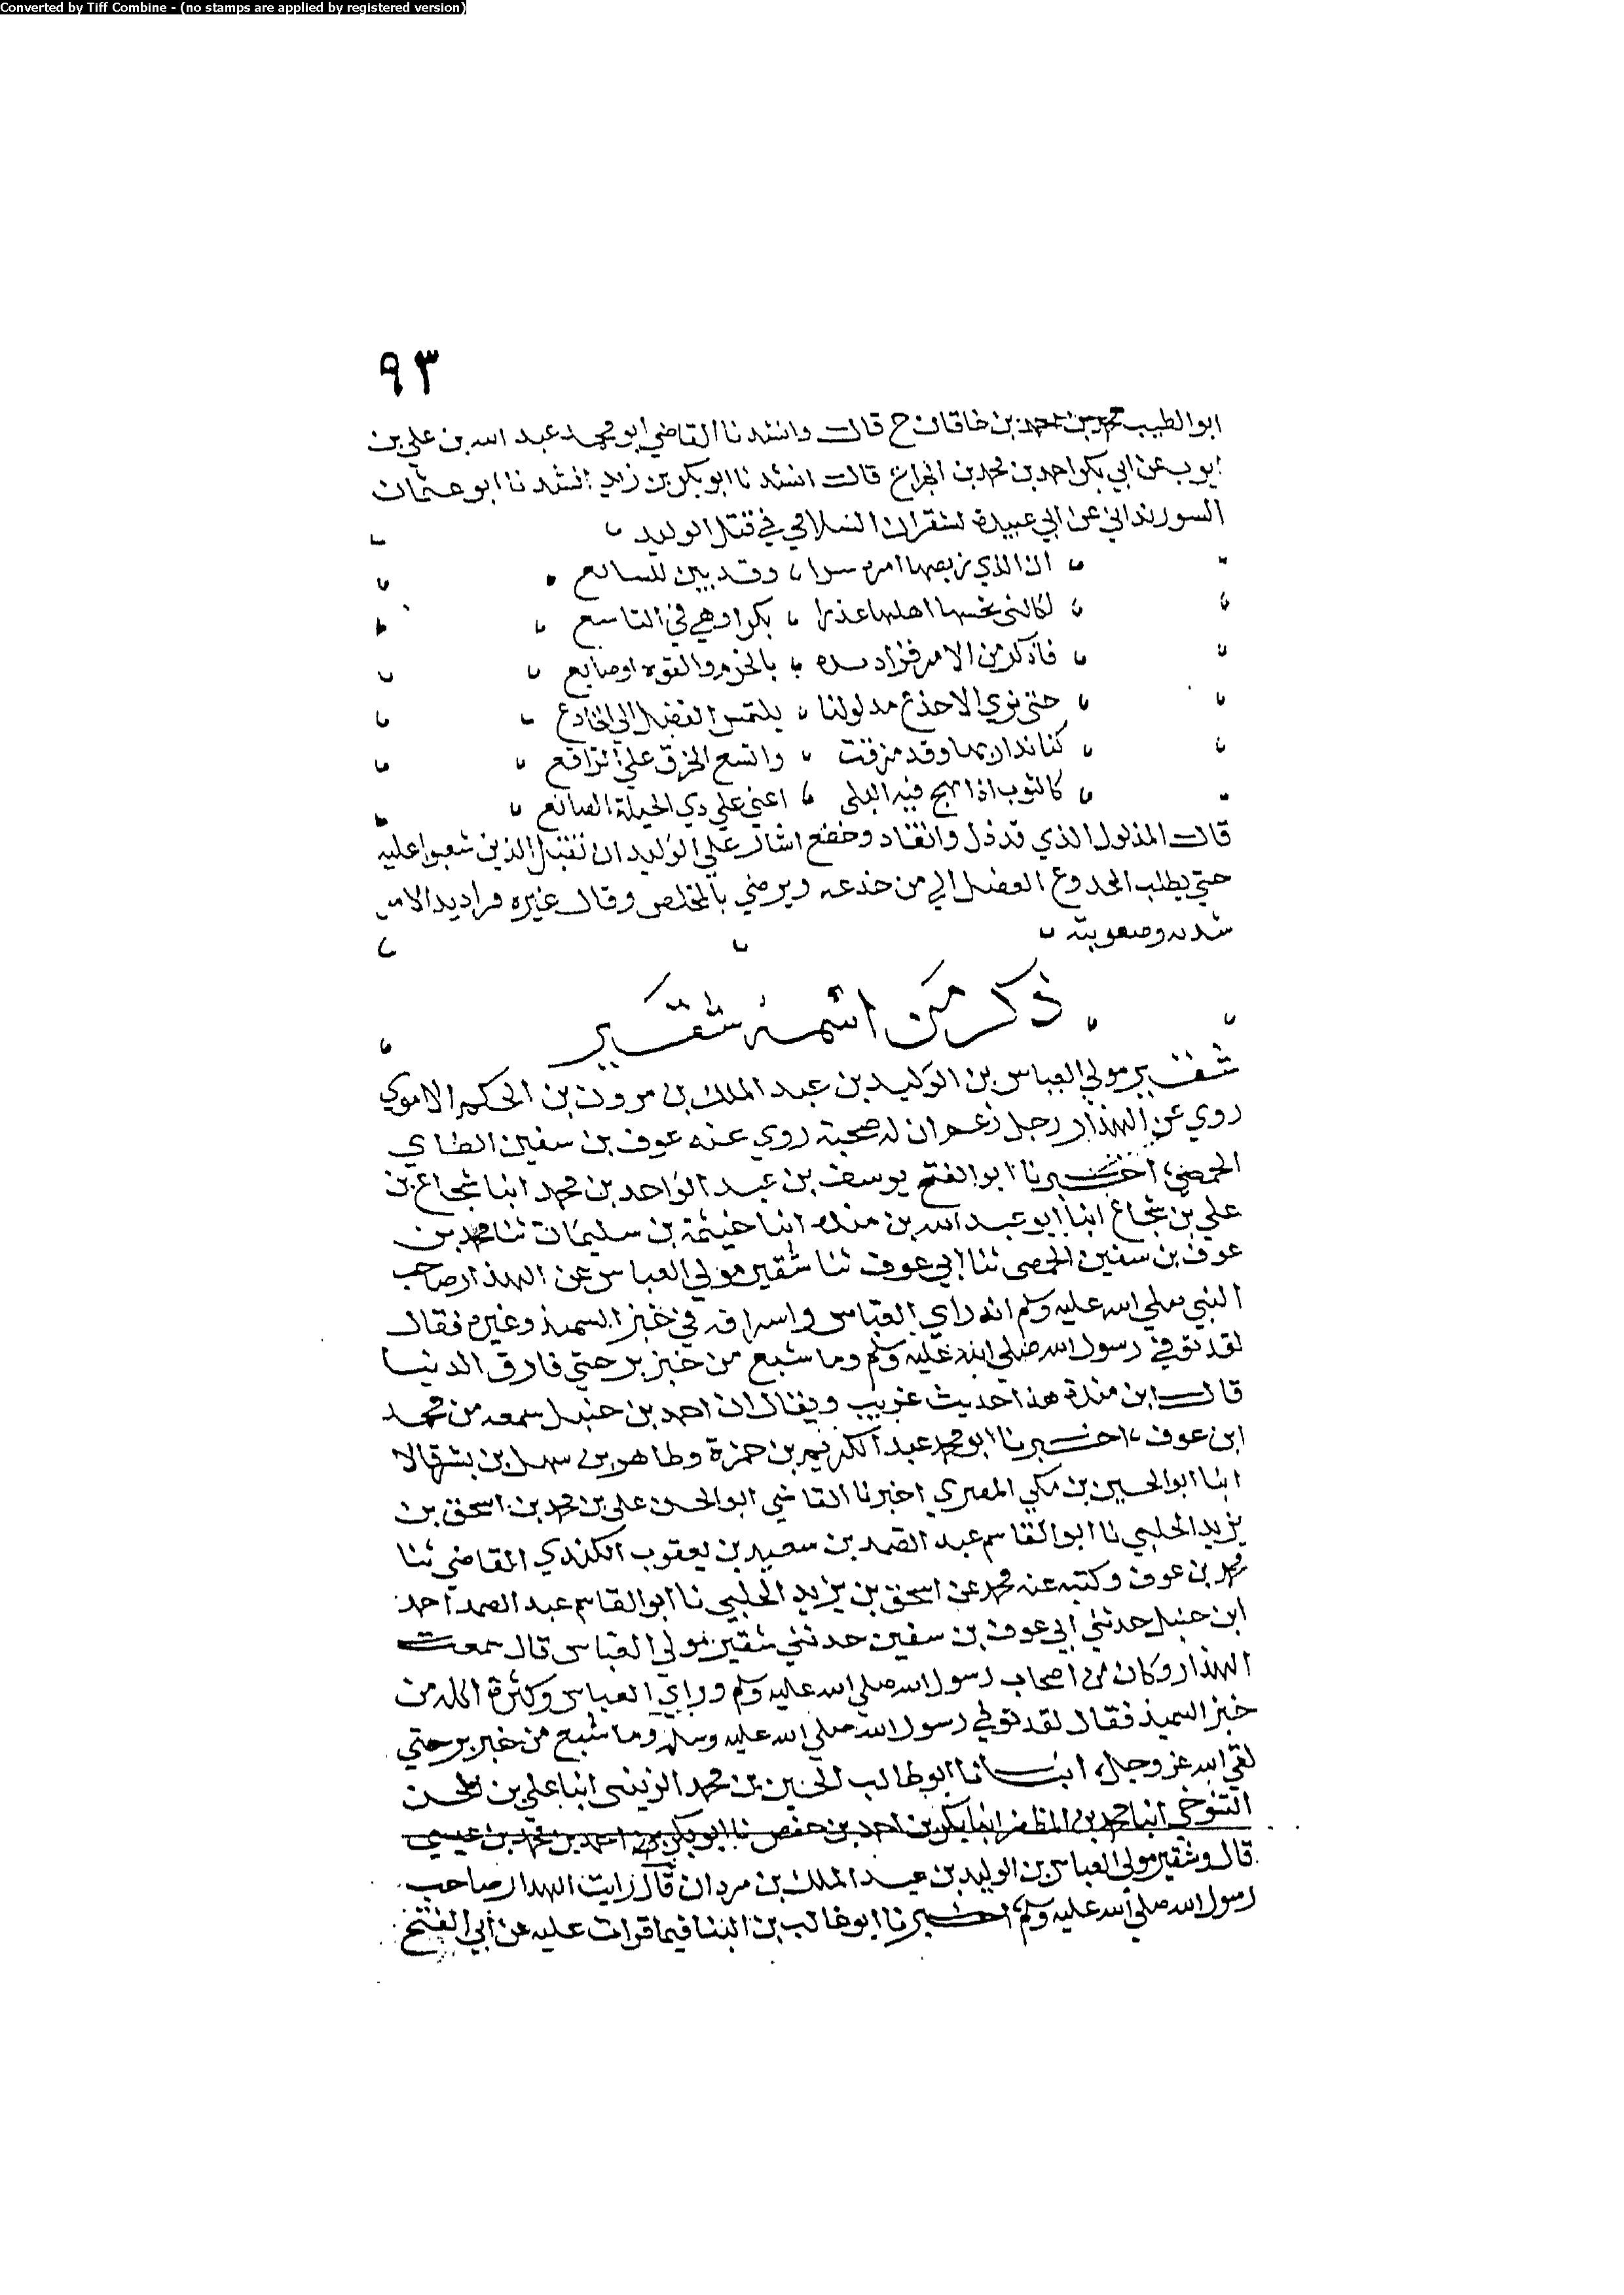 Converted by Tiff Combine - (no stamps are applied by registered version)
٩٣
ابوالطيب محمد بن احمد بن خاقان ح قال وانشدنا القاضي ابو محمد عبد الله بن علي بن
ايوب عن ابي بكر احمد بن محمد بن الجراح قال انشدنا ابو بكر بن زيد انشدنا ابو عثمان
السورنداني عن ابي عبيدة لشقران السلامي في قتل الوليد
ان الذي امره سرا وقد بين للسامع
لكالتي اهلها عذرا بكرا وهي في التاسع
فاذكر من الامر بالحزم والقوه او صانع
حتى نري الاخذع مدلولنا يلتمس الفضل الي الخادع
كنا نداريها وقد مزقت واتسع الخرق علي الراقع
كالثوب اذا انهج فيه البلى اعني علي ذي الحيلة الصانع
قال المذلول الذي قد ذل وانقاد وخضع اشار علي الوليد ان نقتبل الذين شعبوا عليه
حتى يطلب المخدوع الفضل الي من خذعه ويرضي بالتخلص وقال غيره قراديد الامر
شدته وصعوبته
ذكر من اسمه شقير
شقير مولي العباس بن الوليد بن عبد الملك بن مرون بن الحكم الاموي
روي عن الهذار رجل زعم ان له صحبة روي عنه عوف بن سفين الطاي
الحمصي اخبرنا ابو الفتح يوسف بن عبد الواحد بن محمد انبا شجاع بن
علي بن شجاع انبا ابو عبد الله بن منده انبا خيثمة بن سليمان ثنا محمد بن
عوف بن سفين الحمصي ثنا ابي عوف ثنا شقير مولي العباس عن الهذار صاحب
النبي صلي الله عليه وسلم انه راي العباس واسرافه في خبز السميذ وغيره فقال
لقد توفي رسول الله صلي الله عليه وسلم وما شبع من خبز بر حتي فارق الدنيا
قال ابن مندة هذا حديث غريب ويقال ان احمد بن حنبل سمعه من محمد
ابن عوف اخبرنا ابو محمد عبد الكريم بن حمزة وطاهر بن سهل بن بشر قالا
انبا ابو الحسين بن مكي المصري اخبرنا القاضي ابو الحسن علي بن محمد بن اسحق بن
يزيد الحلبي نا ابو القاسم عبد الصمد بن سعيد بن يعقوب الكندي القاضي ثنا
محمد بن عوف وكتبه عنه محمد عن اسحق بن يزيد الحلبي نا ابو القاسم عبد الصمد احمد
ابن حنبل حدثني ابي عوف بن سفين حدثني شقير مولي العباس قال سمعت
الهذار وكان من اصحاب رسول الله صلي الله عليه وسلم وراي العباس وكثرة اكله من
خبز السميذ فقال لقد توفي رسول الله صلي الله عليه وسلم وما شبع من خبز بر حتي
لقي الله عز وجل انبانا ابو طالب الحسين بن محمد الزينبي انبا علي بن المحسن
التنوخي انبا محمد بن المظفر انبا بكر بن احمد بن حفص نا ابو بكر بن احمد بن محمد بن عيسي
قال وشقير مولي العباس بن الوليد بن عبد الملك بن مروان قال رايت الهدار صاحب
رسول الله صلي الله عليه وسلم اخبرنا ابو غالب بن البنا فيما قرات عليه عن ابي الفتح